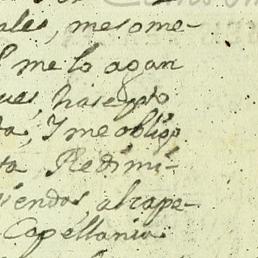 ales, me some-
l me lo agan
ues, hasepto
ta, Y me obligo
ta Redimi-
iendos al cape-
Capellania